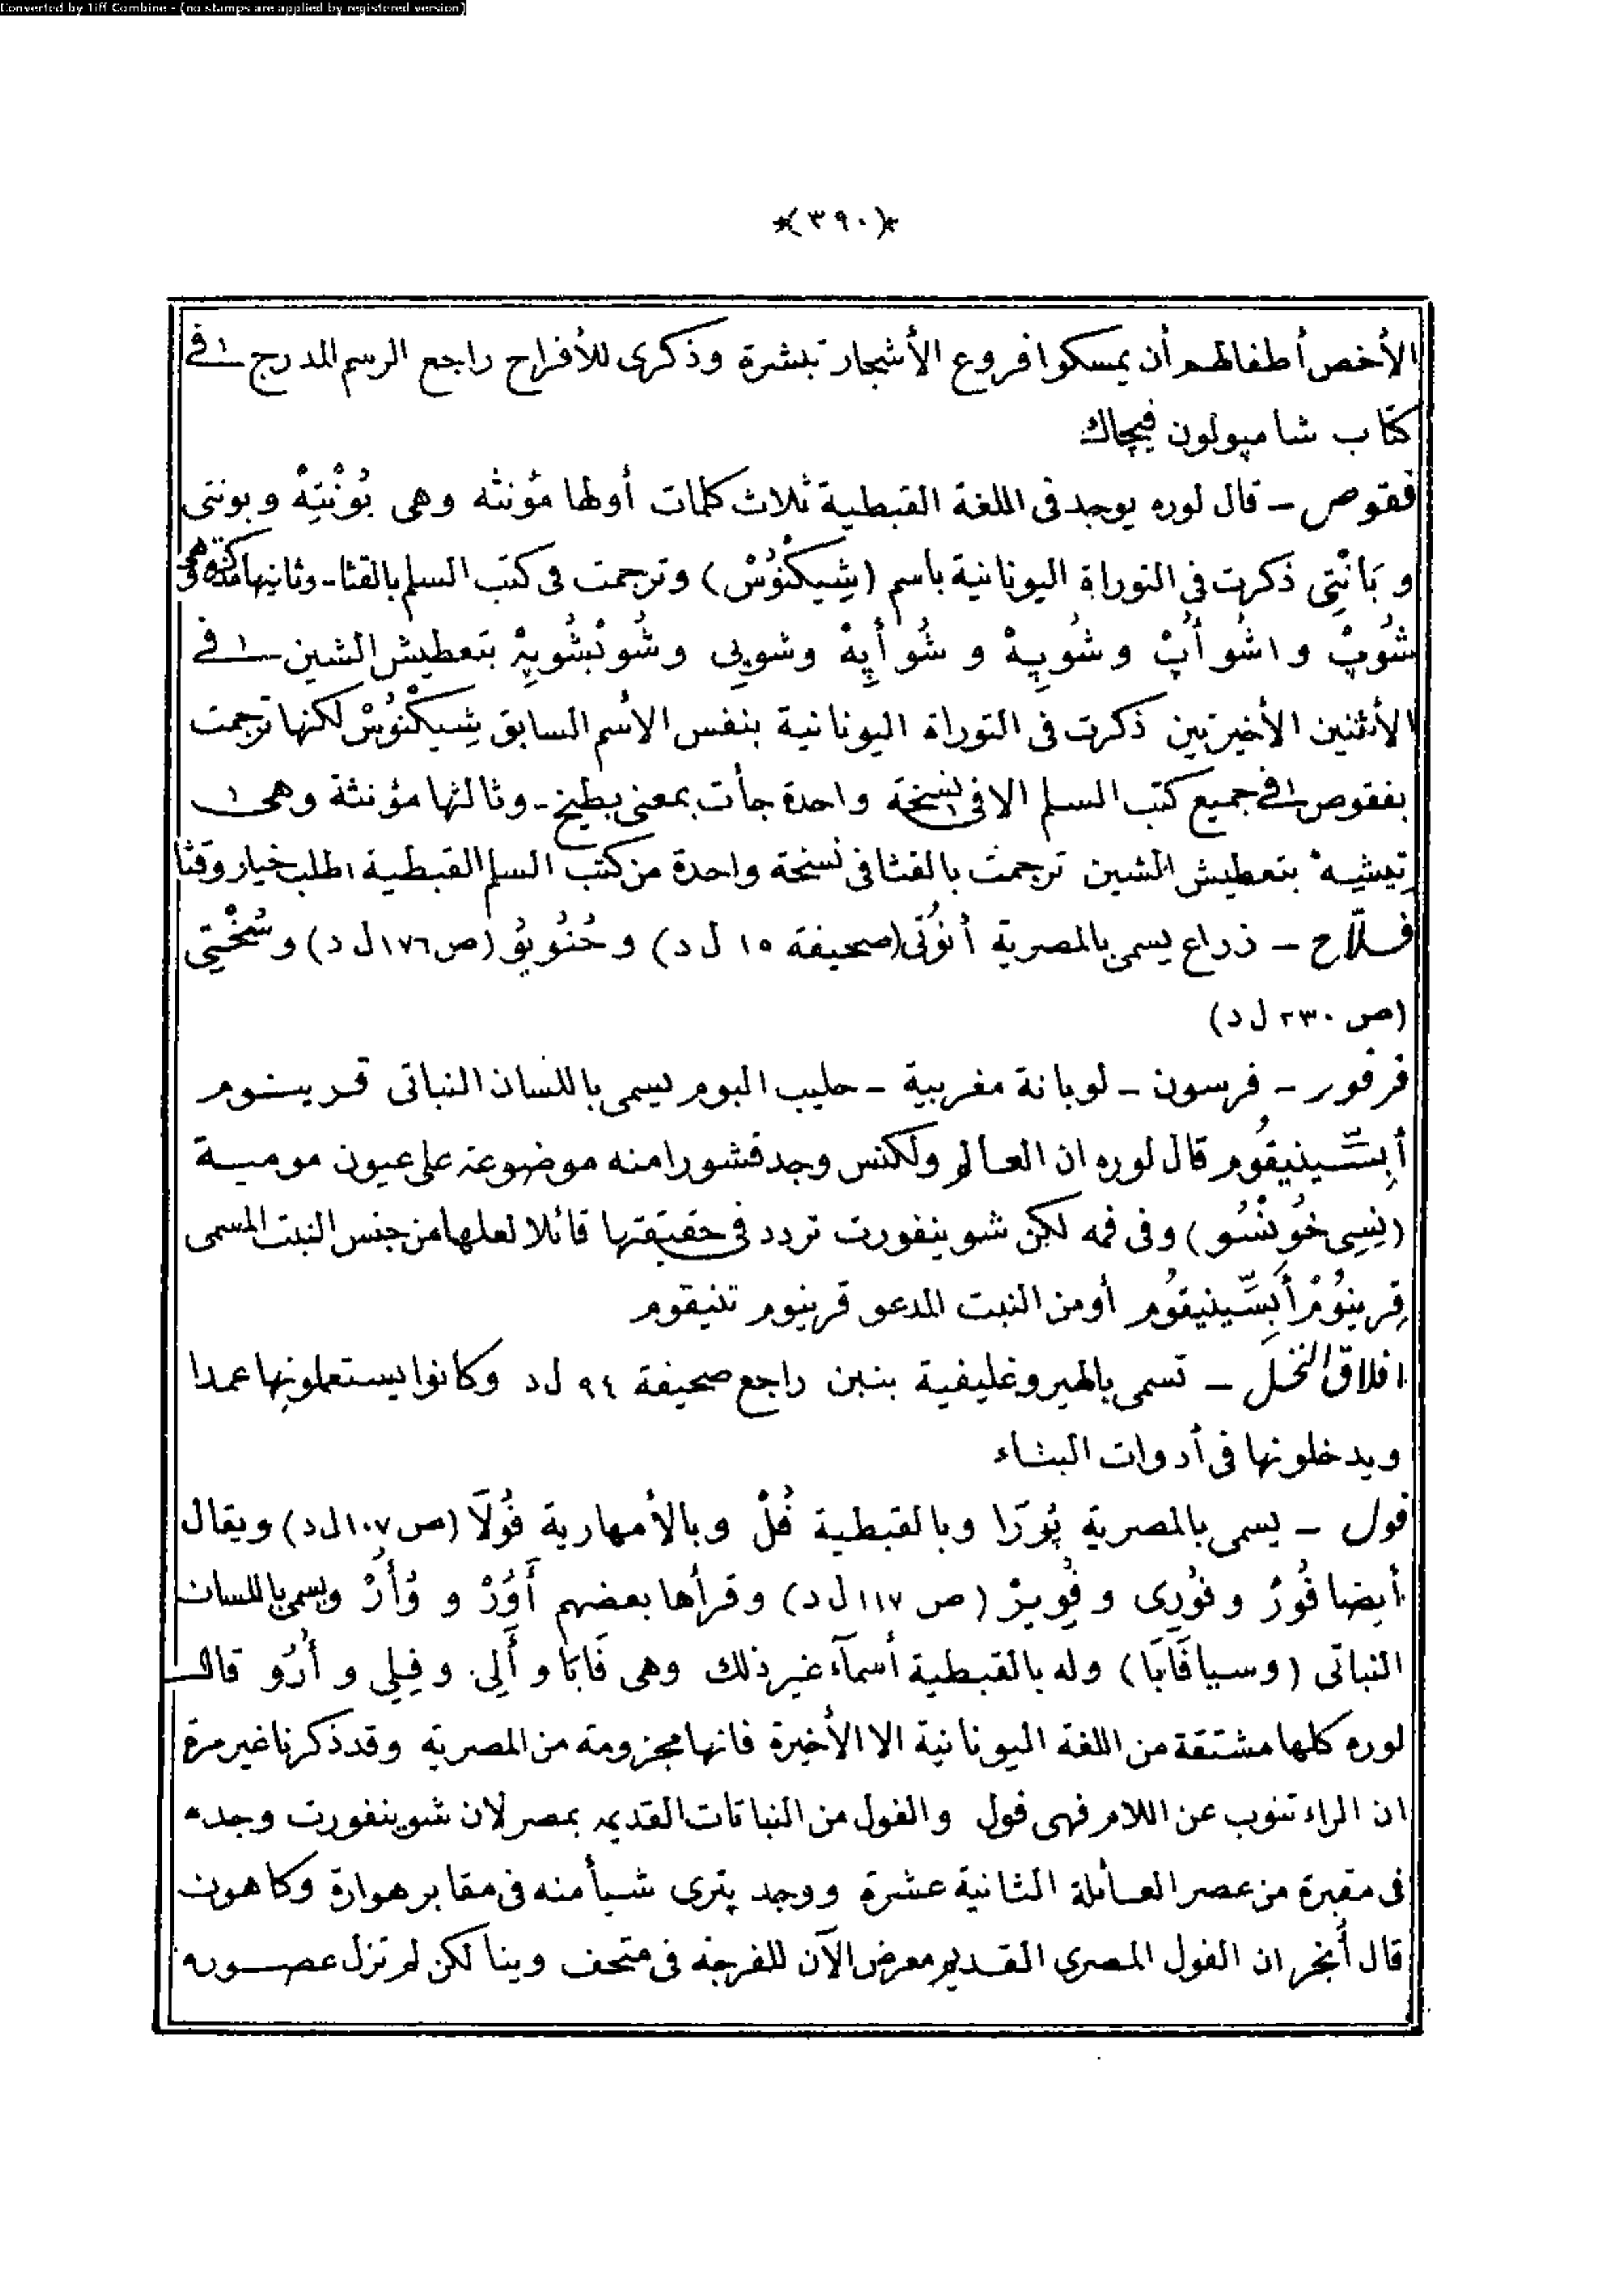 Converted by Tiff Combine - (no stamps are applied by registered version)
*(٣٩٠)*
الأخص أطفالهم أن يمسكوا فروع الأشجار تبشرة وذكرى للأفراح راجع الرسم المدرج فى
كتاب شامپولون فيچاك
فقوص ـ قال لوره يوجد فى اللغة القبطية ثلاث كلمات أولها مؤنثه وهى بُونْتِهْ وبونتى
و بَانْتِى ذكرت فى التوراة اليونانية باسم (شِيكْنُوُسْ) وترجمت فى كتب السلم بالقثا ـ وثانيها مذكره وهى
شُوبْ و اشُوأَبْ و شُوبِهْ و شُوأَبِهْ وشوبى وشُونْشُوبِهْ بتعطيش الشين فى
الأثنين الأخيرتين ذكرت فى التوراة اليونانية بنفس الاسم السابق شِيكْنُوُسْ لكنها ترجمت
بفقوص فى جميع كتب السلم الا فى نسخة واحدة جأت بمعنى بطيخ ـ وثالثها مؤنثة وهى
تِيشِيهْ بتعطيش الشين ترجمت بالقثا فى نسخة واحدة من كتب السلم القبطية اطلب خيار وقثا
فلّاح ـ زراع يسمى بالمصرية أنُوتى (صحيفة ١٥ ل د) و حُنُوبُو (ص ١٧٦ ل د) و سُخْتِى
(ص ٢٣٠ ل د)
فرفور ـ فرسون ـ لوبانة مغربية ـ حليب البوم يسمى باللسان النباتى قرينوم
أَبِسّينِيقُوم قال لوره ان العالم ولكنس وجد قشورا منه موضوعة على عيون مومية
(نِسِى خُونْسُو) وفى فمه لكن شوينفورت تردد فى حقيقتها قائلا لعلها من جنس النبت المسمى
قِرِينُوُمْ أَبِسّينِيقُوم أو من النبت المدعو قرينوم تنيقوم
افلاق النخل ـ تسمى بالهيروغليفية بنبن راجع صحيفة ٩٤ ل د وكانوا يستعملونها عمدا
ويدخلونها فى أدوات البناء
فول ـ يسمى بالمصرية پُورَا وبالقبطية فُلْ وبالأمهارية فُولَا (ص ١٠٧ ل د) ويقال
أيضا فُورْ و فُورِى و فُوِيرْ (ص ١١٧ ل د) وقرأها بعضهم أَوُرْ و وُأَرْ ويسمى باللسان
النباتى (وسيا فَابَا) وله بالقبطية أسمآء غير ذلك وهى فَابَا و أَلِى و فِلِى و أُرُو قال
لوره كلها مشتقة من اللغة اليونانية الا الأخيرة فانها مجزومة من المصرية وقد ذكرنا غير مرة
ان الراء تنوب عن اللام فهى فول والفول من النباتات القديمه بمصر لان شوينفورت وجده
فى مقبرة من عصر العائلة الثانية عشرة ووجد پترى شيأ منه فى مقابر هوارة وكاهون
قال أنجر ان الفول المصرى القديم معرض الآن للفرجة فى متحف وينا لكن لم تزل عصوره